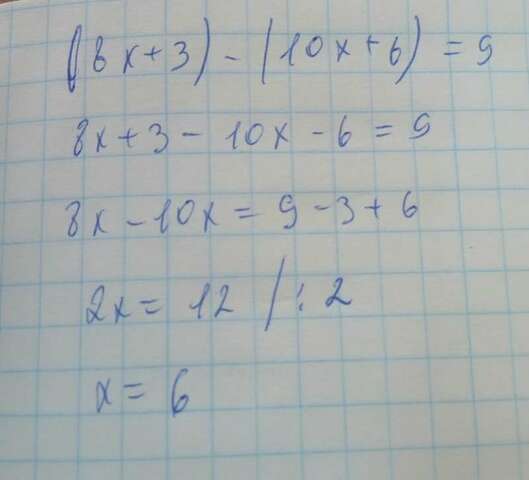 (8x+3)-(10x+6)=9
8x+3-10x-6=9
8x-10x=9-3+6
2x=12/:2
x=6